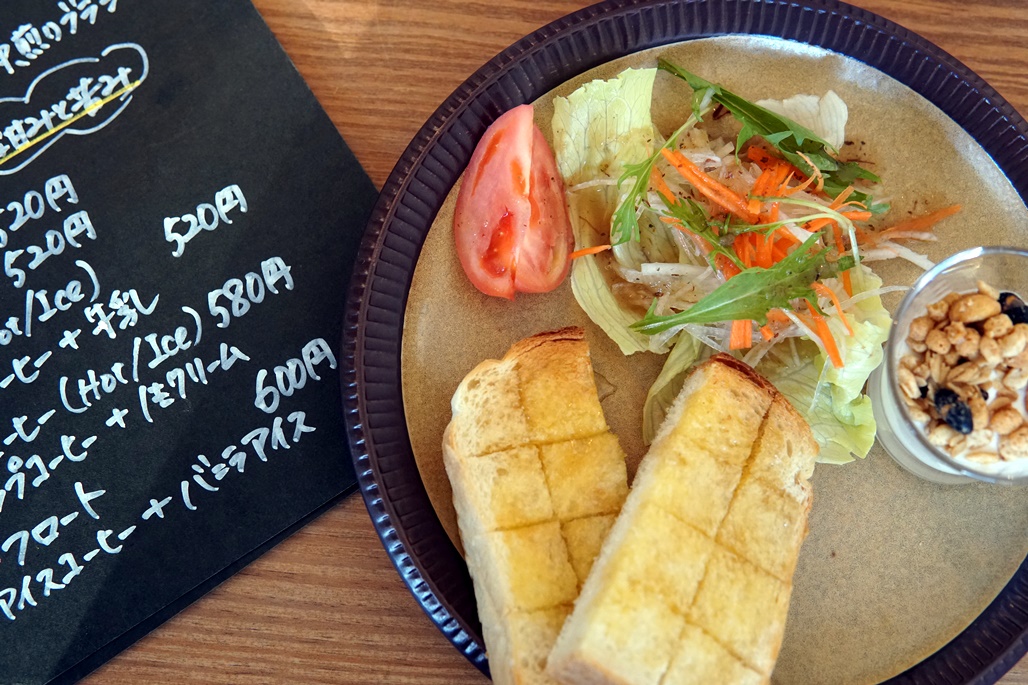 中煎りブラ
甘みと苦み
520円
520円 520円
Hot/Ice)
ーヒー + 牛乳
ーヒー (Hot/Ice) 580円
プコーヒー + 生クリーム
フロート 600円
アイスコーヒー + バニラアイス